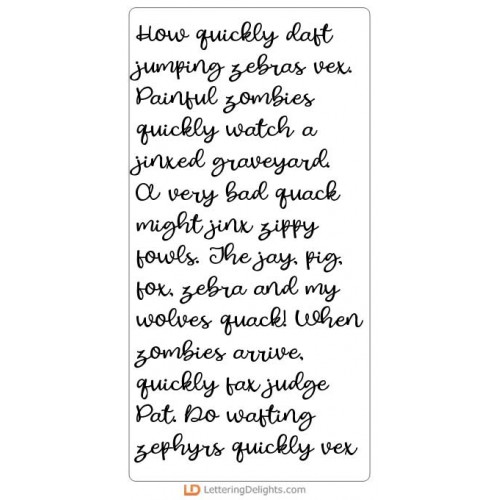 How quickly daft
jumping zebras vex.
Painful zombies
quickly watch a
jinxed graveyard.
A very bad quack
might jinx zippy
fowls. The jay, pig,
fox, zebra and my
wolves quack! When
zombies arrive,
quickly fax judge
Pat. Do wafting
zephyrs quickly vex
LD LetteringDelights.com